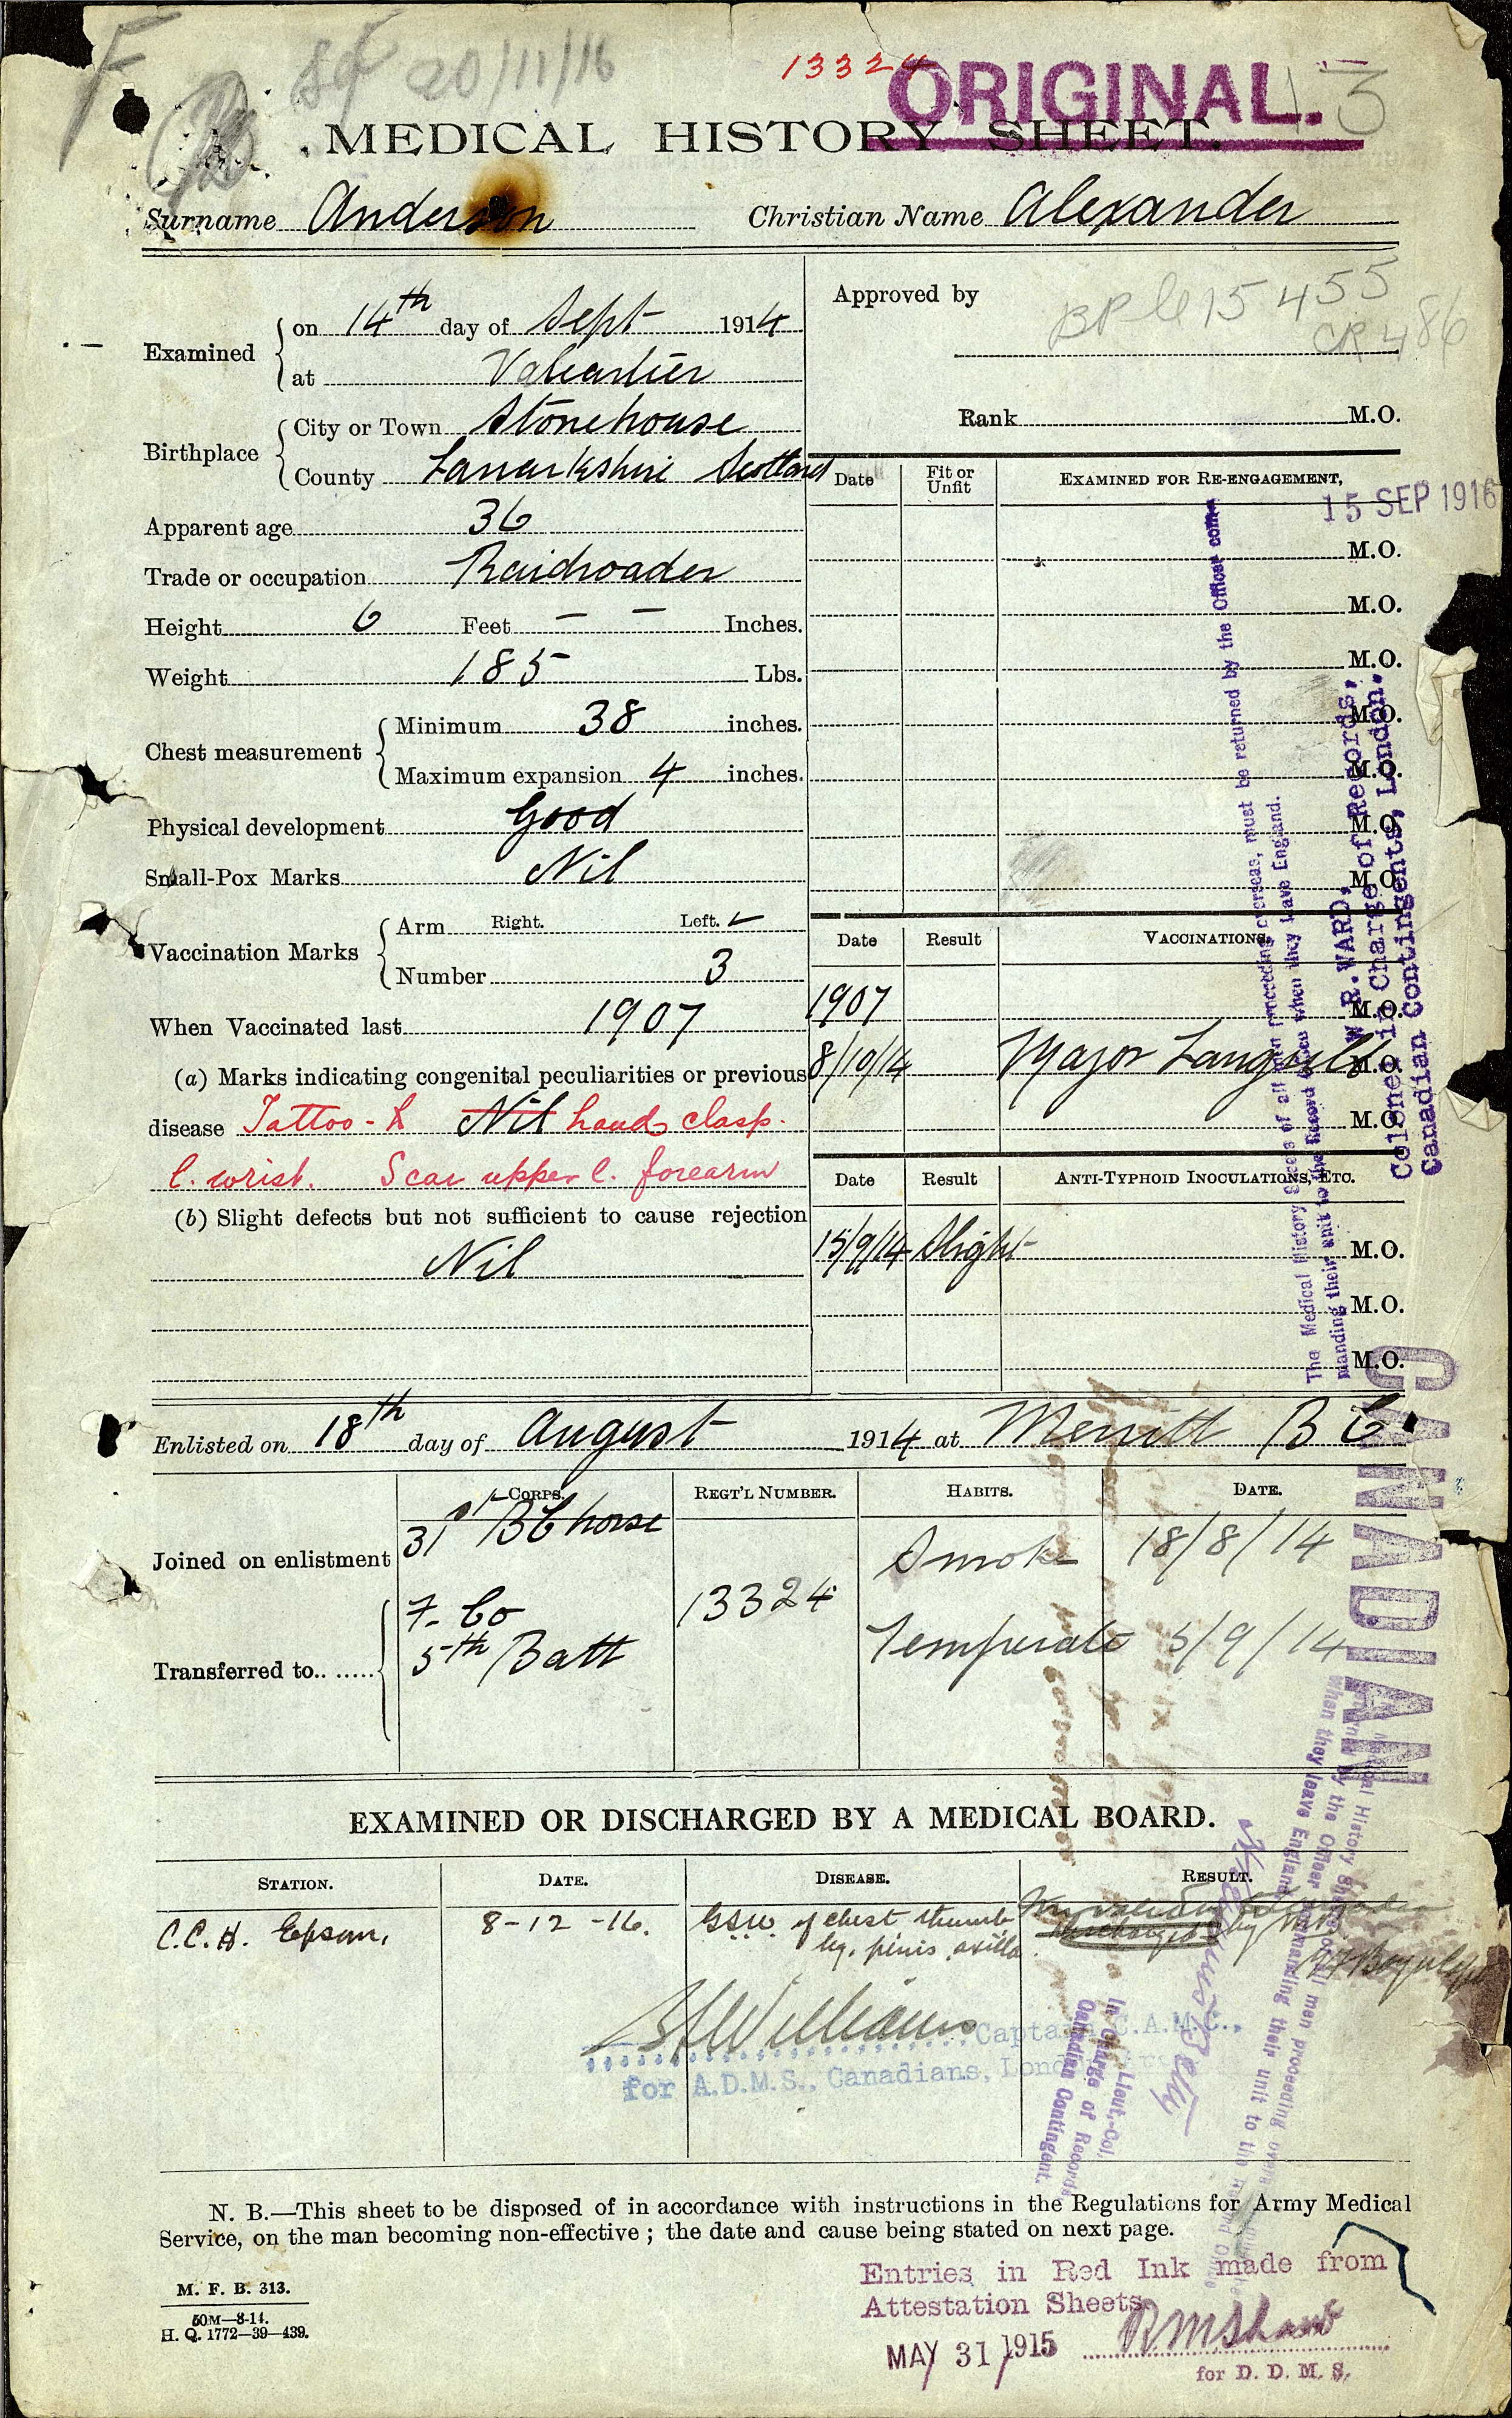 F
20/11/16
13324
ORIGINAL.
13
MEDICAL HISTORY SHEET.
Surname Anderson Christian Name Alexander
Examined on 14th day of Sept 1914
at Valcartier
Birthplace City or Town Stonehouse
County Lanarkshire Scotland
Apparent age 36
Trade or occupation Railroader
Height 6 Feet — — Inches.
Weight 185 Lbs.
Chest measurement Minimum 38 inches.
Maximum expansion 4 inches.
Physical development Good
Small-Pox Marks Nil
Vaccination Marks Arm Right. Left. ✓
Number 3
When Vaccinated last 1907
(a) Marks indicating congenital peculiarities or previous
disease Tattoo - Nil hands clasp.
l. wrist. Scar upper l. forearm
(b) Slight defects but not sufficient to cause rejection
Nil
Approved by
15455
CR 486
Rank M.O.
Date Fit or Unfit EXAMINED FOR RE-ENGAGEMENT,
15 SEP 1916
M.O.
M.O.
M.O.
M.O.
M.O.
M.O.
M.O.
Date Result VACCINATIONS.
1907 M.O.
8/10/14 Major M.O.
M.O.
Date Result ANTI-TYPHOID INOCULATIONS, ETC.
15/9/14 Slight M.O.
M.O.
M.O.
The Medical History Sheets of all men proceeding overseas, must be returned by the Officer com-
manding their unit to the Record Office when they leave England.
W. R. WARD,
Colonel in Charge of Records,
Canadian Contingents, London.
CANADIAN
Enlisted on 18th day of August 1914 at Merritt B C
CORPS. REGT'L NUMBER. HABITS. DATE.
Joined on enlistment 31st BC horse Smoke 18/8/14
Transferred to F. Co 13324
5th Batt Temperate 5/9/14
EXAMINED OR DISCHARGED BY A MEDICAL BOARD.
STATION. DATE. DISEASE. RESULT.
C.C.H. Epsom, 8-12-16. GSW of chest thumb
leg. penis axilla
Williams Captain C.A.M.C.,
for A.D.M.S., Canadians, London Area
Lieut.-Col.
In Charge of Records
Canadian Contingent.
N. B.—This sheet to be disposed of in accordance with instructions in the Regulations for Army Medical
Service, on the man becoming non-effective; the date and cause being stated on next page.
M. F. B. 313.
50M—8-14.
H. Q. 1772—39—439.
Entries in Red Ink made from
Attestation Sheets.
MAY 31 1915 RMShaw
for D. D. M. S.